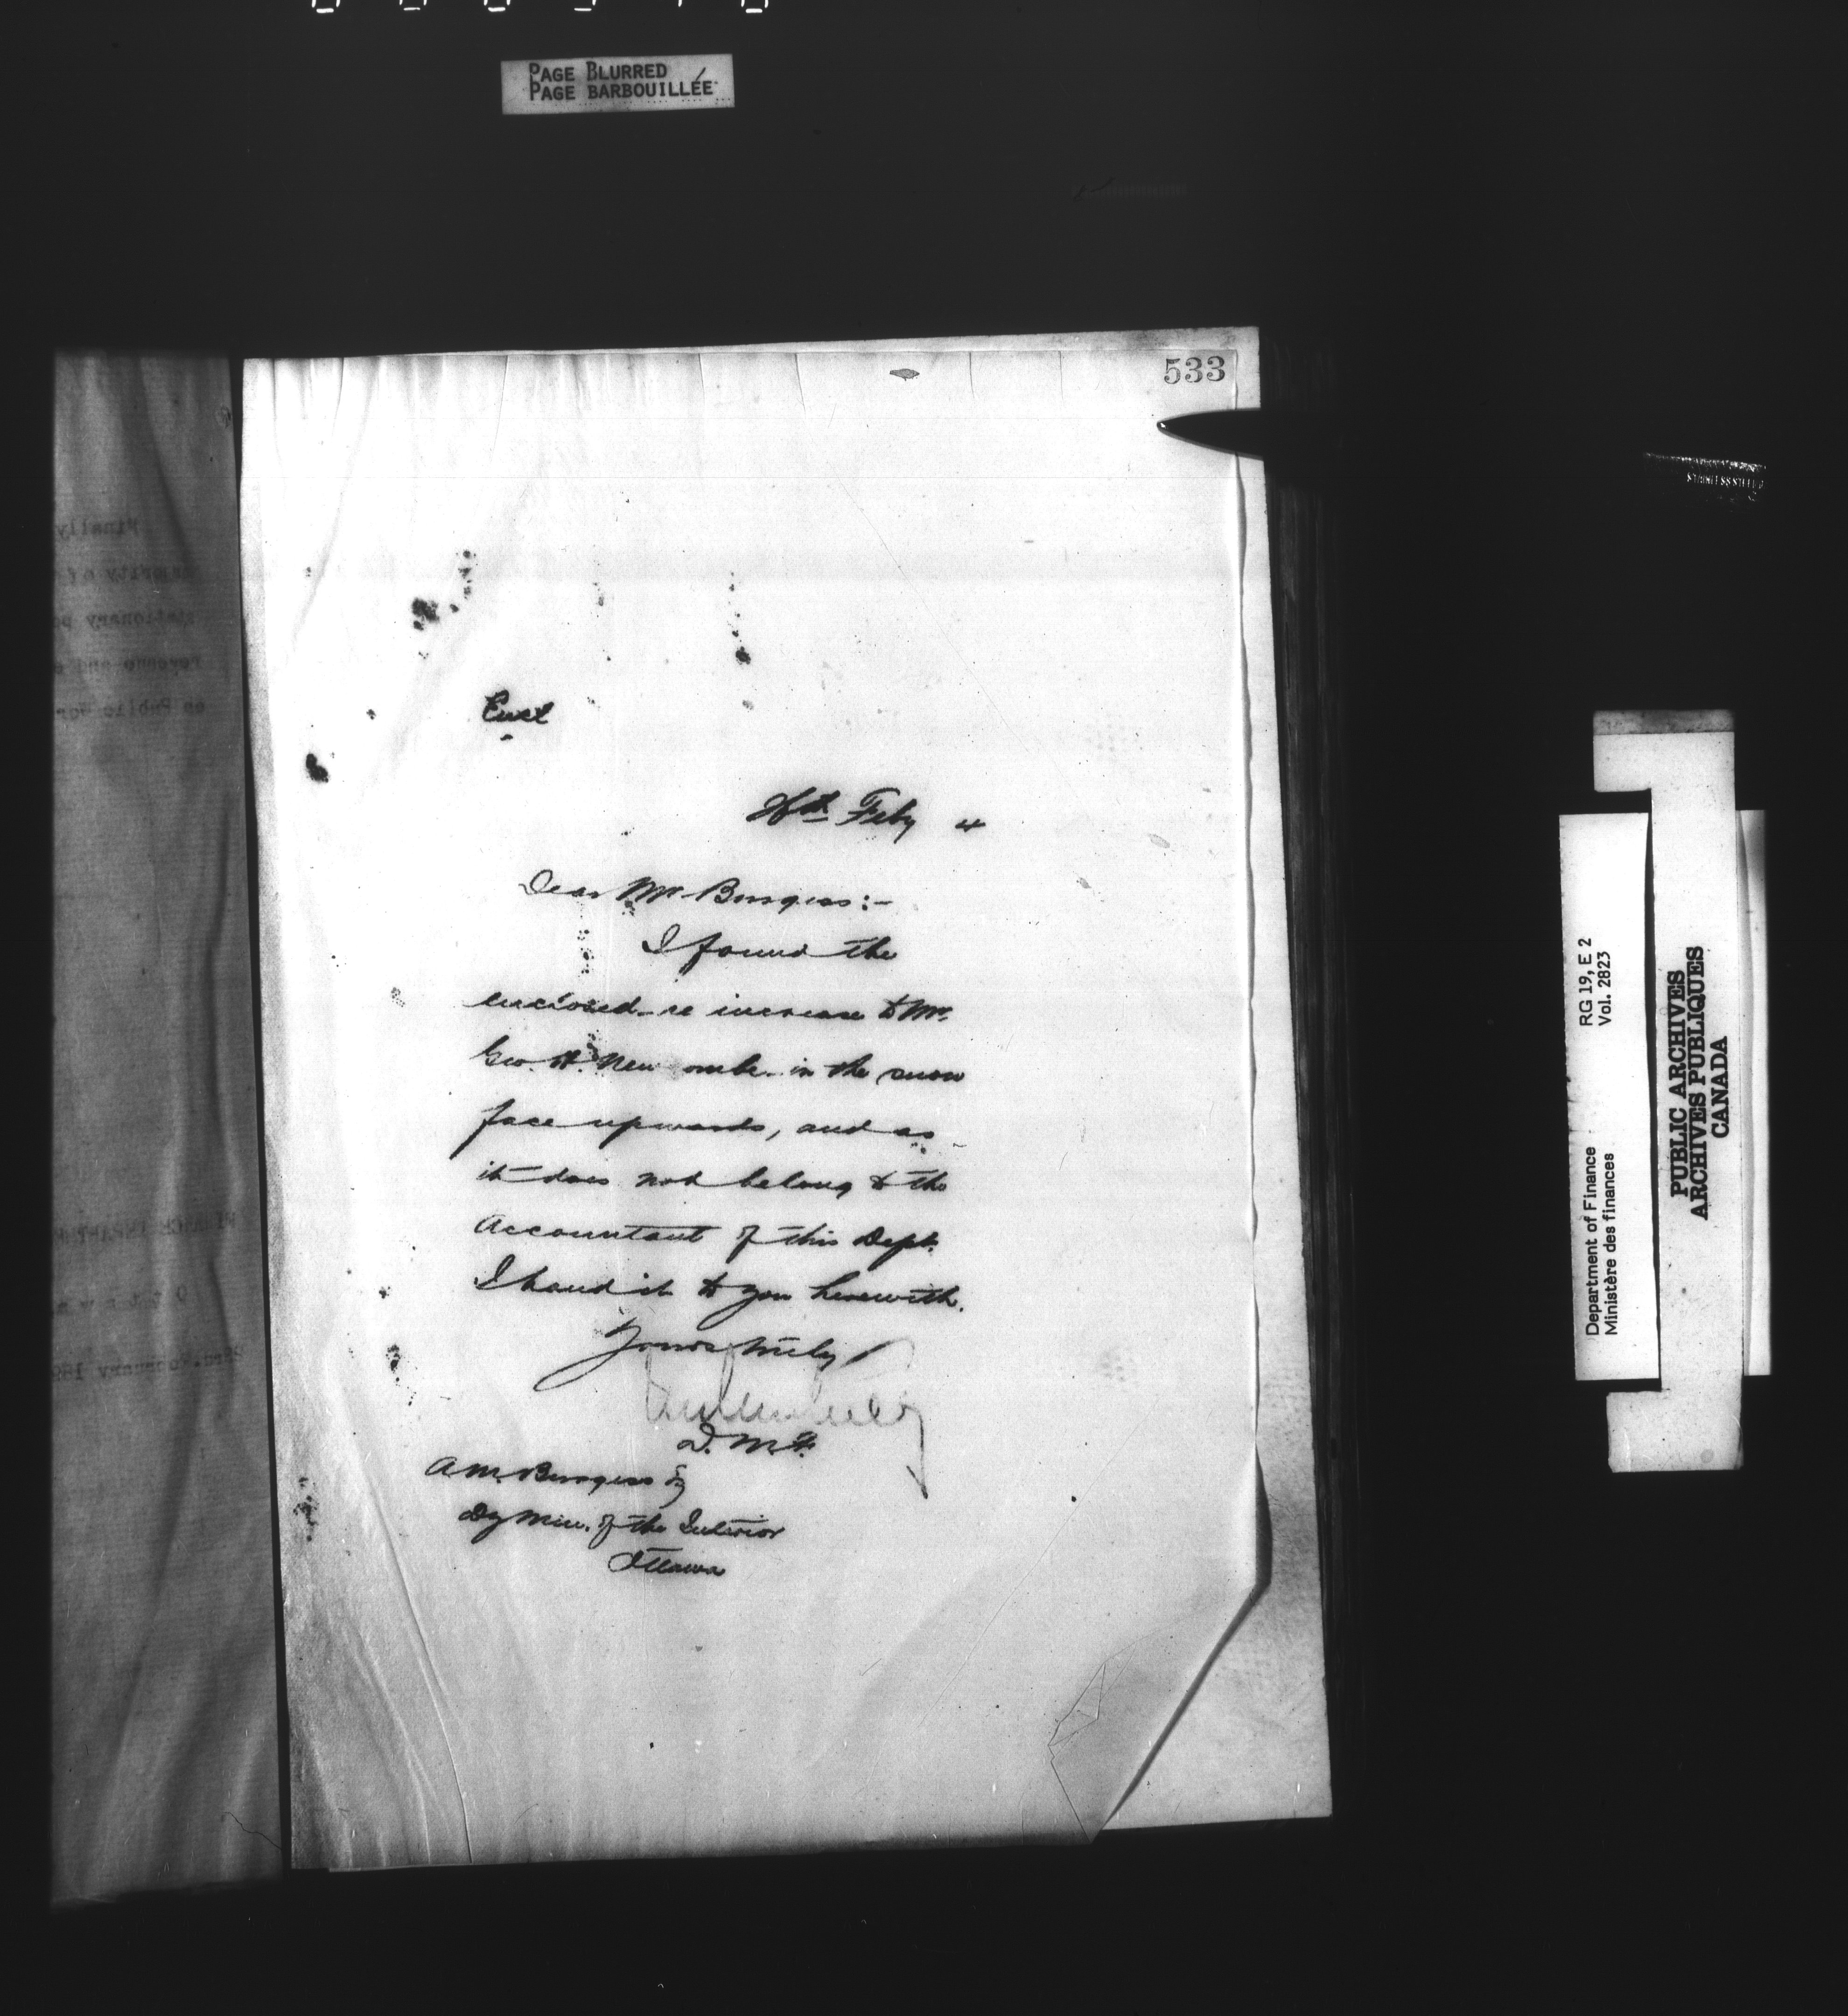 PAGE BLURRED
PAGE BARBOUILLÉE
533
Encl
Feby 4
Dear Mr Burgess:-
I found the
enclosed re increase to Mr.
Geo. H. New ombe in the snow
face upwards, and as
it does not belong to the
Accountant of this Dept.
I hand it to you herewith.
Yours truly
D. M. F.
A. M. Burgess Esq
Dy Min. of the Interior
Ottawa
Finally
stationary
revenue and
as Public
RG 19, E 2
Vol. 2823
Department of Finance
Ministère des finances
PUBLIC ARCHIVES
ARCHIVES PUBLIQUES
CANADA